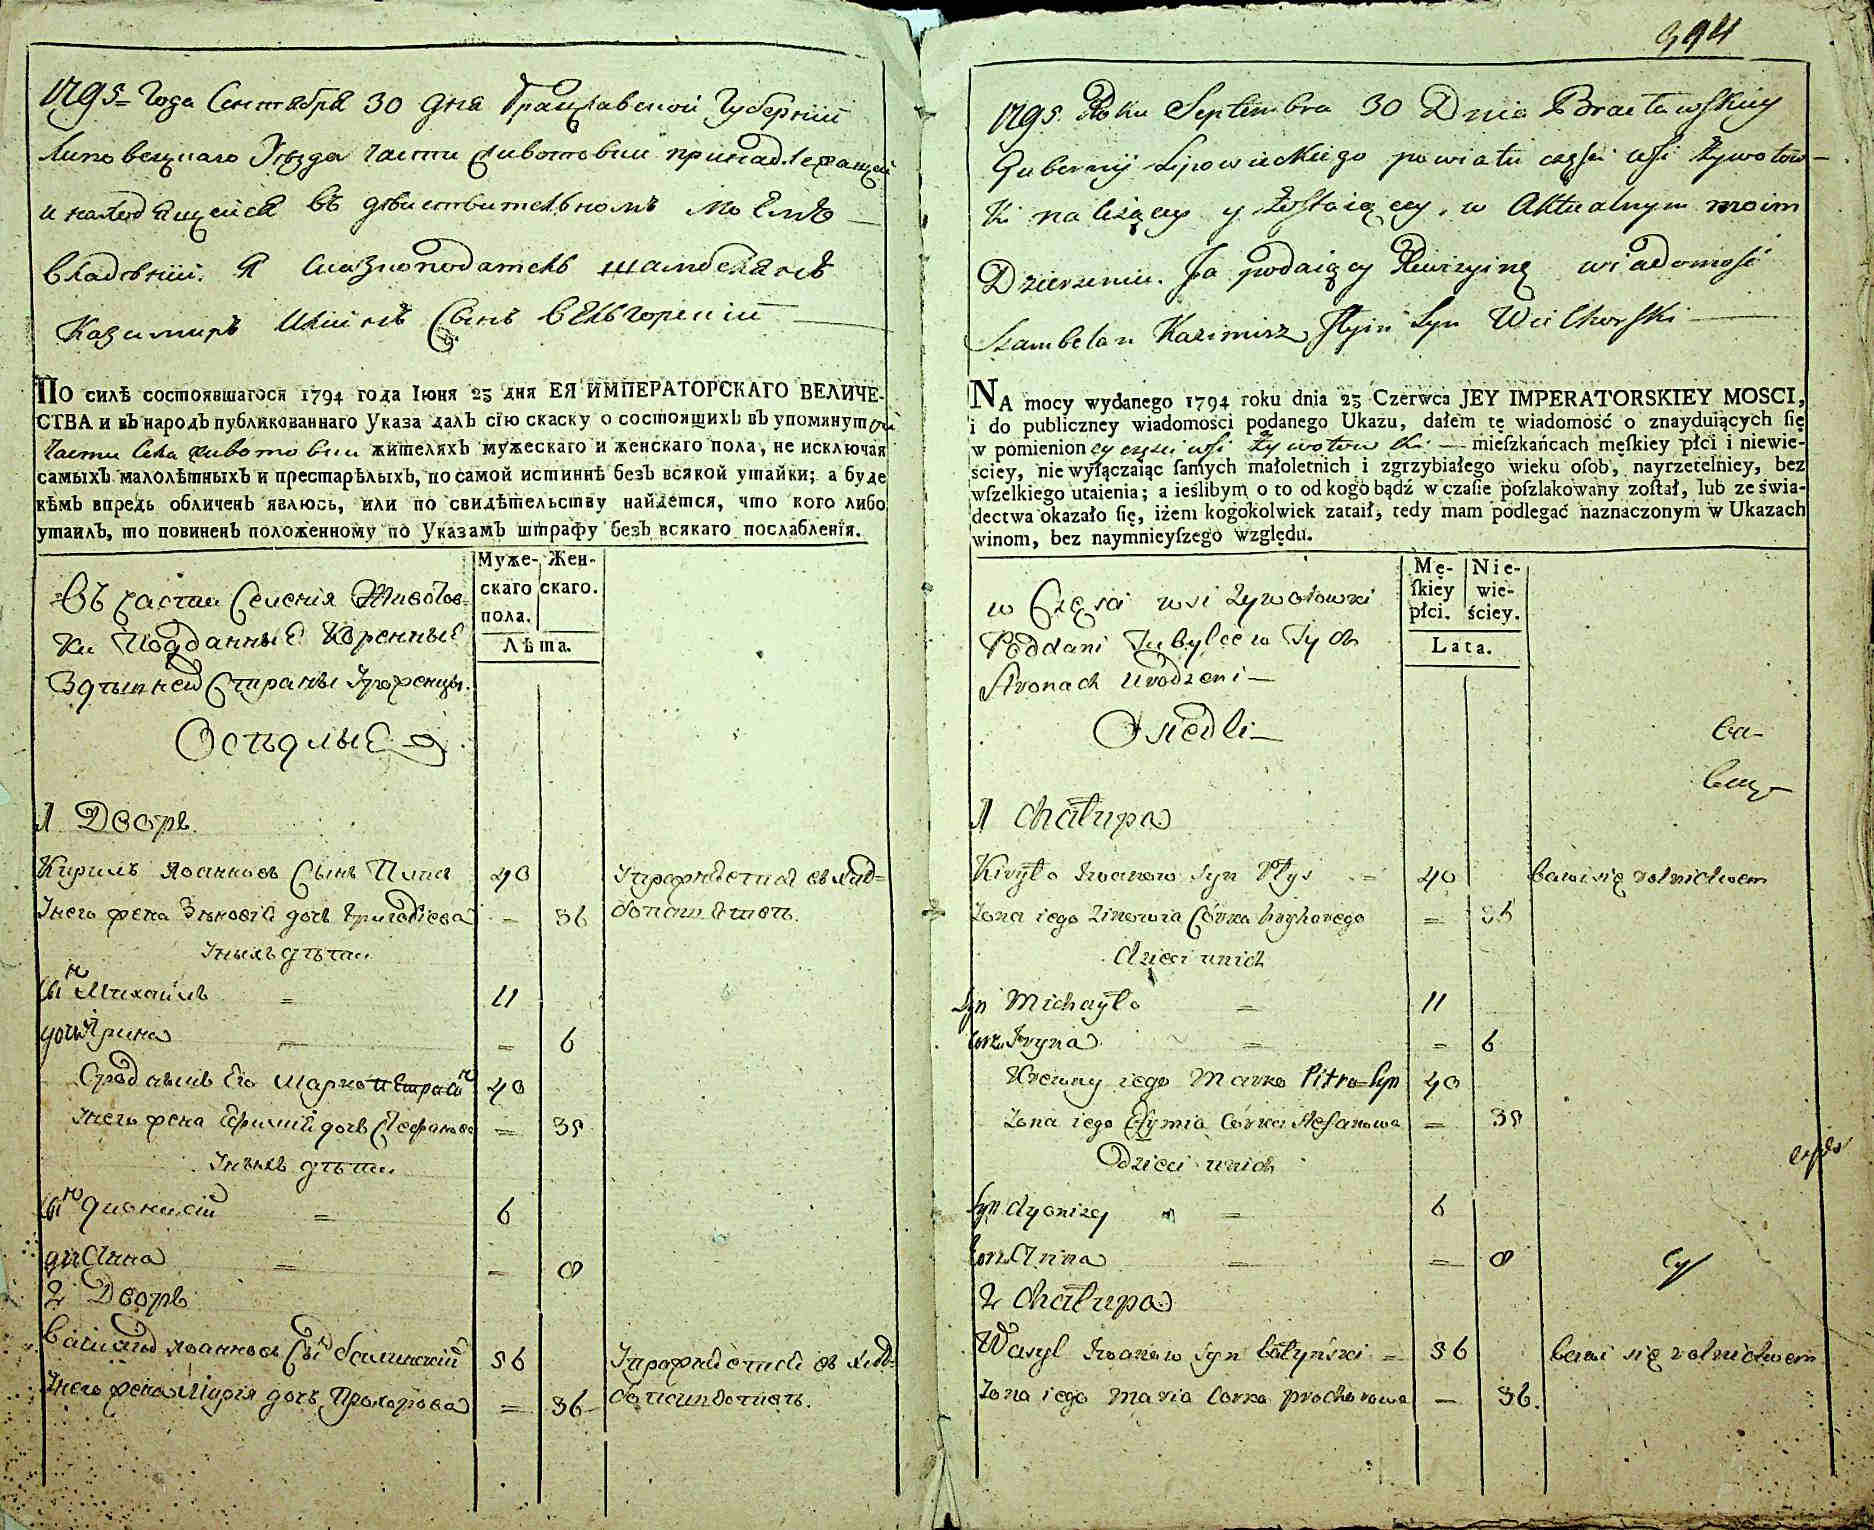 1795= Года Сентября 30 дня Брацлавской Губернии
Липовецкаго Уезда части Животовки принадлежащей
и находящейся въ действительномъ моемъ
владѣнии. Я сказкоподатель шамбелянъ
Казимиръ Сынъ Вельгорский
ПО силѣ состоявшагося 1794 года Іюня 23 дня ЕЯ ИМПЕРАТОРСКАГО ВЕЛИЧЕ-
СТВА и въ народъ публикованнаго Указа далъ сїю скаску о состоящихъ въ упомянутой
Части Села Животовки жителяхъ мужескаго и женскаго пола, не исключая
самыхъ малолѣтныхъ и престарѣлыхъ, по самой истиннѣ безъ всякой утайки; а буде
кѣмъ впредь обличенъ явлюсь, или по свидѣтельству найдется, что кого либо
утаилъ, то повиненъ положенному по Указамъ штрафу безъ всякаго послабленїя.
Муже- Жен-
скаго скаго.
пола.
Лѣта.
Въ части Селения Животов-
ки Подданные Коренные
Здешней Стираны Урожденцы.
Оседлые
1 Дворъ
Кирилъ Иоанновъ Сынъ Плисъ 40 Упражняется въ хлѣ-
У него жена Зѣновія дочь Григориева = 36 бопашестве.
У нихъ дѣти
Сынъ Михайлъ = 11
дочь Ярина = = 6
Сродникъ Его Марко Петровъ 40
У него жена Ефимия дочь Стефанова = 35
У нихъ дѣти
Сынъ Дионисий = 6
дочь Анна = = 8
2 Дворъ
Василей Иоанновъ Сынъ Балинский 36 Упражняется въ хлѣ-
У него жена Мария дочь Прохорова = 36 бопашестве.
394
1795. Roku Septembra 30 Dnia Bracławskiey
Gubernij Lipowieckiego powiatu części wsi Żywotow-
ki należącey y zostaiącey, w Aktualnym moim
Dzierzeniu. Ja podaiący Rewizyinę wiadomość
Szambelan Kazimirz Syn Wielhorski
NA mocy wydanego 1794 roku dnia 23 Czerwca JEY IMPERATORSKIEY MOSCI,
i do publiczney wiadomości podanego Ukazu, dałem tę wiadomość o znayduiących się
w pomienioney części wsi Żywotowki mieſzkańcach męſkiey płci i niewie-
ściey, nie wyłączaiąc ſamych małoletnich i zgrzybiałego wieku oſob, nayrzetelniey, bez
wſzelkiego utaienia; a ieślibym o to od kogo bądź w czaſie poſzlakowany zoſtał, lub ze świa-
dectwa okazało ſię, iżem kogokolwiek zataił, tedy mam podlegać naznaczonym w Ukazach
winom, bez naymnieyſzego względu.
Mę- Nie-
ſkiey wie-
płci. ściey.
Lata.
w Części wsi Zywotowki
Poddani Tubylce w Tych
Stronach Urodzeni
Osiedli
1 Chałupa
Kiryło Iwanow Syn Plys = 40 bawi się rolnictwem
Zona iego Zinowia Córka hryhorego = 36
dzieci unich
Syn Michayło = 11
Cor. Iryna = = 6
Krewny iego Marko Pitro Syn 40
Zona iego Efymia Córka Stefanowa = 35
Dzieci unich
Syn dyonizy = 6
Cor. Anna = = 8
2 Chałupa
Wasyl Iwanow Syn bałyński = 36 bawi się rolnictwem
Zona iego Maria Corka prochorowa = 36.